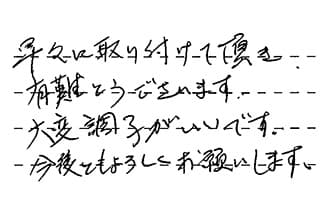 早々に取り付けて頂き、
有難とうございます。
大変調子がいいです。
今後ともよろしくお願いします。